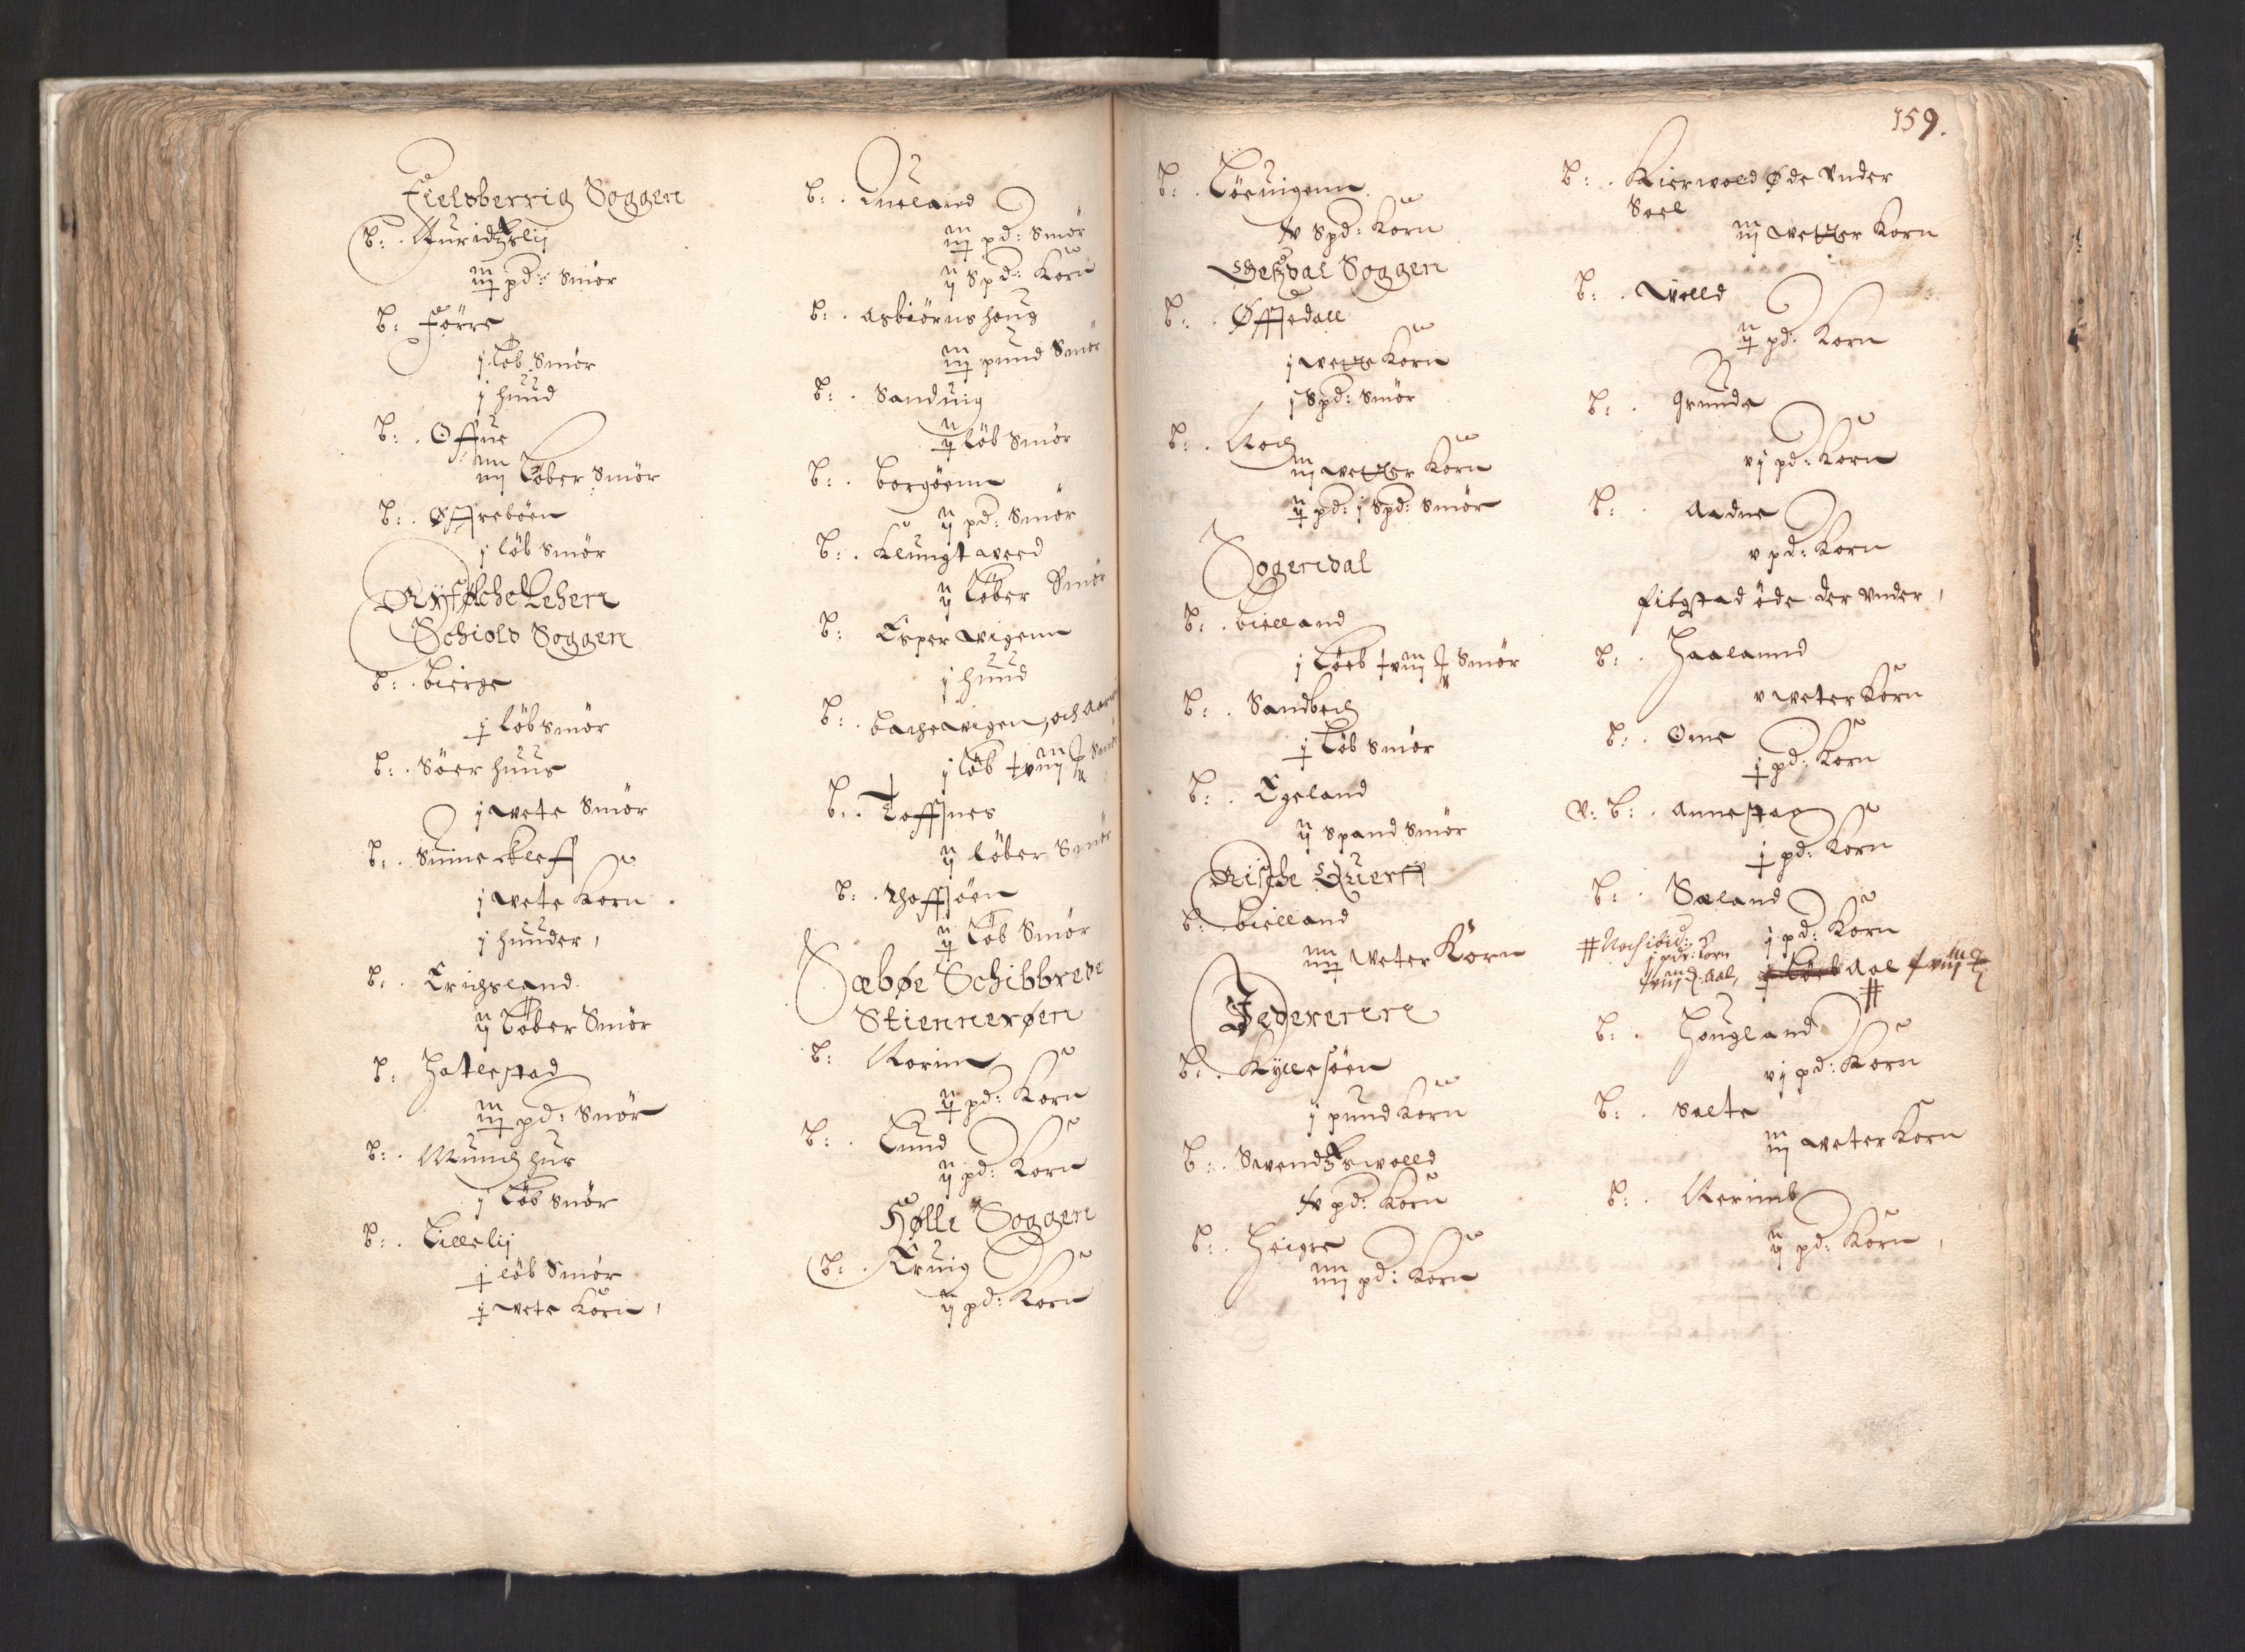 Fielsberrig Soggen
B: . Auridtzlij
iij pd: Smör
B: Förre
j löb Smör
j huud
B: . Offue
iiij Löber Smör
B: . Øffreböen
j löb Smör
Ryfølche Lehen
Schiold Soggen
B: . Bierge
j löb Smör
B: . Söer huus
j wete Smör
B: . Suineskleff
j wete Korn
j huuder,
B: . Erichsland
ij Löber Smör
B: Hatlestad
iij pd: Smör
B: . Munchhus
j Löb Smör
B: . Lillelij
j löb Smör
j wete Korn,
B: . Aueland
iij pd: Smör
ij Spd: Korn
B: . Asbiörnshoug
iij pund Smör
B: . Sanduig
ij löb Smör
B: . Borgöenn
ij pd: Smör
B: . Klungtweed
ij Löber Smör
B: Esperwigenn
j huud
B: . Bachewigen, och
j löb Smör
B: . Toffsnes
ij löber Smör
B: . Thoffsöen
ij Löb Smör
Sæbøe Schibbrede
Stiennerøen
B: Rorim
ij pd: Korn
B: . Lund
ij pd: Korn
Hølle Soggen
B: . Eruig
ij pd: Korn
159.
B: . Löeuigenn
iv Spd: Korn
Gietzdal Soggen
B: . Øffsedall
j wette Korn
j Spd: Smör
B: . Röch
iij wetter Korn
ij pd: j Spd: Smör
Sogendal
B: . Bielland
j Löeb Smör
B: . Sandbech
j Löb Smör
B: . Egeland
ij Spand Smör
Rische Querff
B: . Bielland
iiij weter Korn
Jederenn
B: . Kyllesöen
j pund Korn
B: . Swendtzwolld
iv pd: Korn
B: . Heigre
iiij pd: Korn
B: . Kierwold Øde Vnder
Soel
iij wetter Korn
B: . Wolld
ij pd: Korn
B: . Grunde
vj pd: Korn
B: . Aadne
v pd: Korn
fibgstad öde der Vnder,
B: . Haalannd
v weter Korn
B: . Ome
j pd: Korn
V: B: . Annestad
j pd: Korn
B: . Sæland
j pd: Korn
# Noch ibid:
j pd: Korn
Aal,
Aal
#
B: . Hougland
vj pd: Korn
B: . Salte
iij weter Korn
B: . Rerimb
ij pd: Korn,